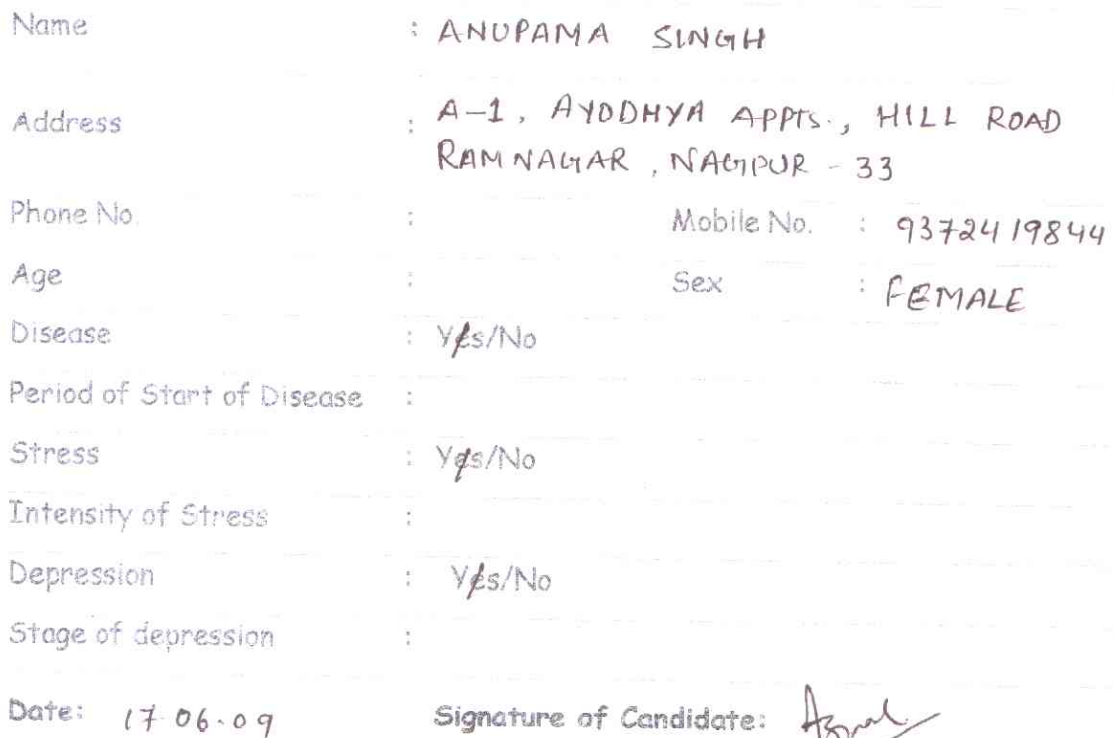 Name : ANUPAMA SINGH
Address : A-1, AYODHYA APPTS., HILL ROAD
RAMNAGAR, NAGPUR - 33
Phone No. : Mobile No. : 9372419844
Age : Sex : FEMALE
Disease : Yes/No
Period of Start of Disease :
Stress : Yes/No
Intensity of Stress :
Depression : Yes/No
Stage of depression :
Date: 17.06.09 Signature of Candidate: